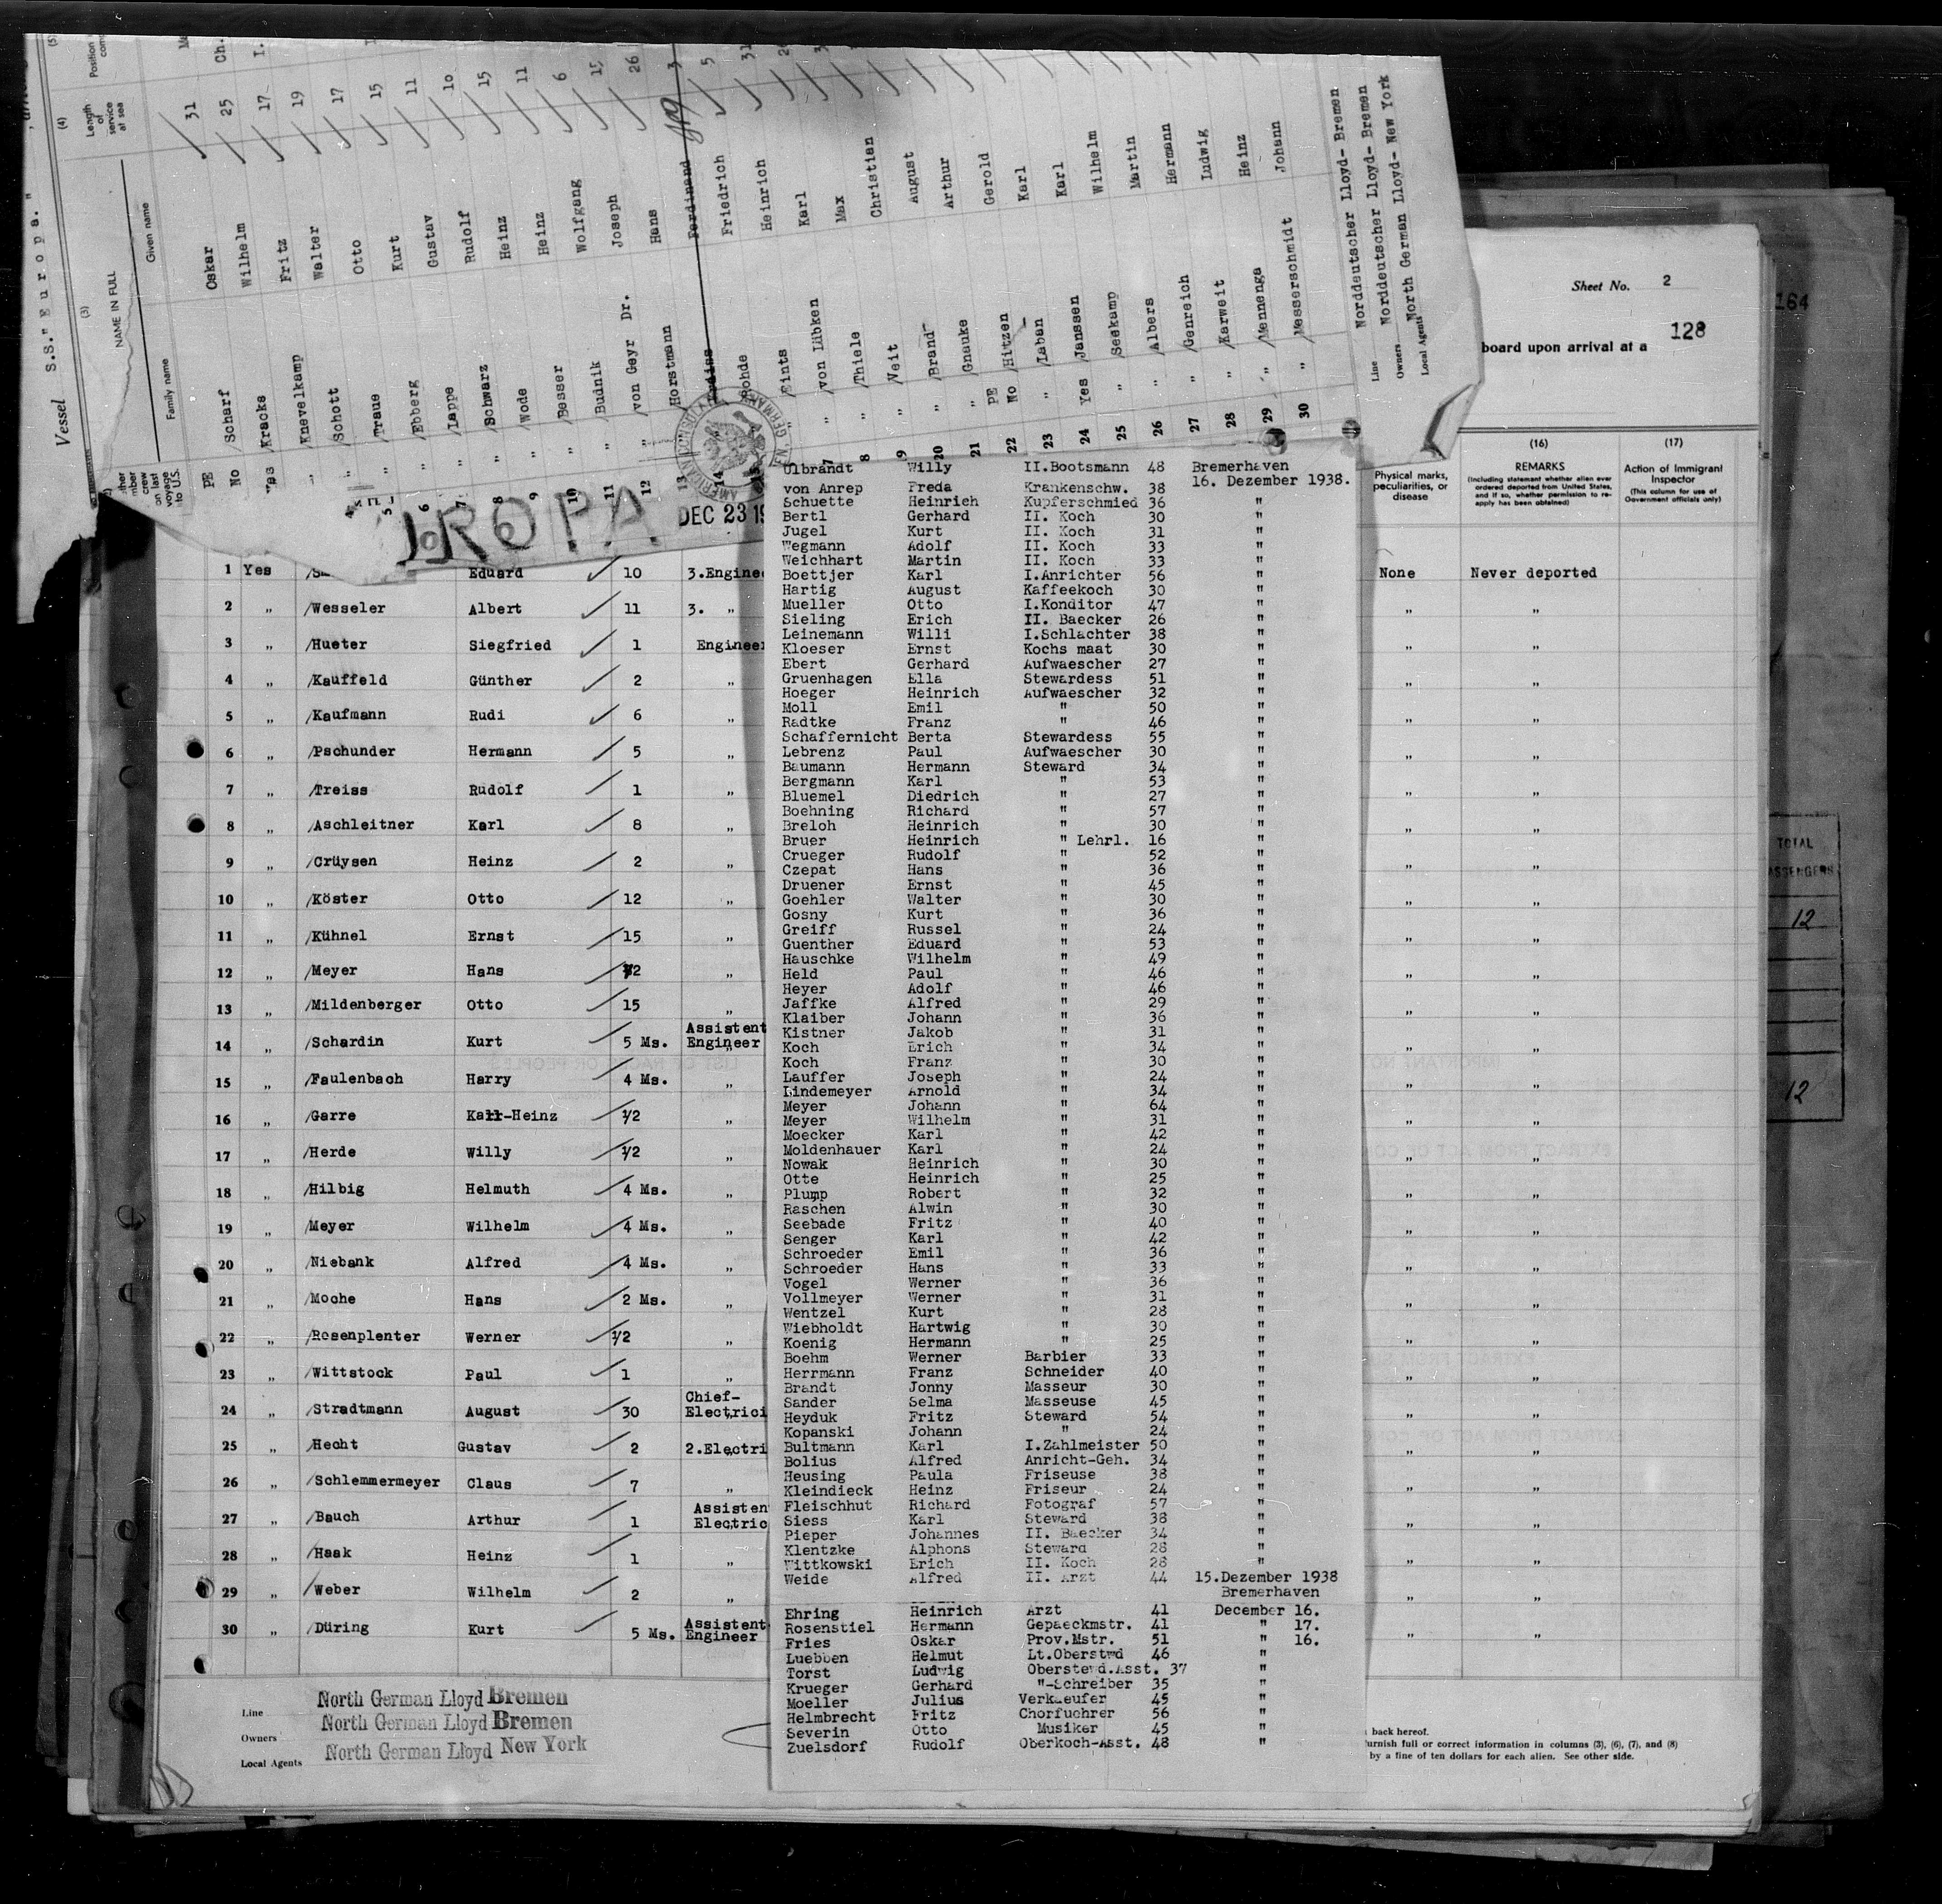 Vessel S.S." E u r o p a. "
(3) (4) (5)
NAME IN FULL
Family name Given name
Length of service at sea
Position
crew on last voyage to U.S.
PE
No /Scharf Oskar 31
Yes /Kracks Wilhelm 25 Ch.
" /Knevelkamp Fritz 17 I.
" /Schott Walter 19
5 " /Traue Otto 17
6 " /Ebberg Kurt 15
7 " /Lappe Gustav 11
8 " /Schwarz Rudolf 10
9 " /Wode Heinz 15
10 " /Besser Heinz 11
11 " /Budnik Wolfgang 6
12 " /von Geyr Dr. Joseph 15
13 /Horstmann Hans 26
14 Ferdinand 3
Rohde Friedrich 5
Eints Heinrich 31
7 " /von Lübken Karl
8 " /Thiele Max
19 " /Veit Christian
20 " /Brand August
21 " /Gnauke Arthur
22 PE No /Hitzen Gerold
23 " /Laban Karl
24 Yes /Janssen Karl
25 " /Seekamp Wilhelm
26 " /Albers Martin
27 " /Genreich Hermann
28 " /Karweit Ludwig
29 " /Mennenga Heinz
30 " /Messerschmidt Johann
Line Norddeutscher Lloyd- Bremen
Owners Norddeutscher Lloyd- Bremen
Local Agents North German Lloyd- New York
ROPA
DEC 23 19
Sheet No. 2
164
128
board upon arrival at a
(16) (17)
Physical marks, peculiarities, or disease
REMARKS
(Including statement whether alien ever ordered deported from United States, and if so, whether permission to reapply has been obtained)
Action of Immigrant Inspector
(This column for use of Government officials only)
1 Yes Eduard 10 3.Enginee None Never deported
2 " /Wesseler Albert 11 3. " " "
3 " /Hueter Siegfried 1 Engineer " "
4 " /Kauffeld Günther 2 " " "
5 " /Kaufmann Rudi 6 " " "
6 " /Pschunder Hermann 5 " " "
7 " /Treiss Rudolf 1 " " "
8 " /Aschleitner Karl 8 " " "
9 " /Crüysen Heinz 2 " " "
10 " /Köster Otto 12 " " "
11 " /Kühnel Ernst 15 " " "
12 " /Meyer Hans 1/2 " " "
13 " /Mildenberger Otto 15 " " "
14 " /Schardin Kurt 5 Ms. Assistent Engineer " "
15 " /Faulenbach Harry 4 Ms. " " "
16 " /Garre Karl-Heinz 1/2 " " "
17 " /Herde Willy 1/2 " " "
18 " /Hilbig Helmuth 4 Ms. " " "
19 " /Meyer Wilhelm 4 Ms. " " "
20 " /Niebank Alfred 4 Ms. " " "
21 " /Moche Hans 2 Ms. " " "
22 " /Rosenplenter Werner 1/2 " " "
23 " /Wittstock Paul 1 " " "
24 " /Stradtmann August 30 Chief-Electrici " "
25 " /Hecht Gustav 2 2.Electri " "
26 " /Schlemmermeyer Claus 7 " " "
27 " /Bauch Arthur 1 Assisten Electric " "
28 " /Haak Heinz 1 " " "
29 " /Weber Wilhelm 2 " " "
30 " /Düring Kurt 5 Ms. Assistent Engineer " "
Line North German Lloyd Bremen
Owners North German Lloyd Bremen
Local Agents North German Lloyd New York
Ulbrandt Willy II.Bootsmann 48 Bremerhaven
16. Dezember 1938.
von Anrep Freda Krankenschw. 38
Schuette Heinrich Kupferschmied 36 "
Bertl Gerhard II. Koch 30 "
Jugel Kurt II. Koch 31 "
Wegmann Adolf II. Koch 33 "
Weichhart Martin II. Koch 33 "
Boettjer Karl I.Anrichter 56 "
Hartig August Kaffeekoch 30 "
Mueller Otto I.Konditor 47 "
Sieling Erich II. Baecker 26 "
Leinemann Willi I.Schlachter 38 "
Kloeser Ernst Kochs maat 30 "
Ebert Gerhard Aufwaescher 27 "
Gruenhagen Ella Stewardess 51 "
Hoeger Heinrich Aufwaescher 32 "
Moll Emil " 50 "
Radtke Franz " 46 "
Schaffernicht Berta Stewardess 55 "
Lebrenz Paul Aufwaescher 30 "
Baumann Hermann Steward 34 "
Bergmann Karl " 53 "
Bluemel Diedrich " 27 "
Boehning Richard " 57 "
Breloh Heinrich " 30 "
Bruer Heinrich " Lehrl. 16 "
Crueger Rudolf " 52 "
Czepat Hans " 36 "
Druener Ernst " 45 "
Goehler Walter " 30 "
Gosny Kurt " 36 "
Greiff Russel " 24 "
Guenther Eduard " 53 "
Hauschke Wilhelm " 49 "
Held Paul " 46 "
Heyer Adolf " 46 "
Jaffke Alfred " 29 "
Klaiber Johann " 36 "
Kistner Jakob " 31 "
Koch Erich " 34 "
Koch Franz " 30 "
Lauffer Joseph " 24 "
Lindemeyer Arnold " 34 "
Meyer Johann " 64 "
Meyer Wilhelm " 31 "
Moecker Karl " 42 "
Moldenhauer Karl " 24 "
Nowak Heinrich " 30 "
Otte Heinrich " 25 "
Plump Robert " 32 "
Raschen Alwin " 30 "
Seebade Fritz " 40 "
Senger Karl " 42 "
Schroeder Emil " 36 "
Schroeder Hans " 33 "
Vogel Werner " 36 "
Vollmeyer Werner " 31 "
Wentzel Kurt " 28 "
Wiebholdt Hartwig " 30 "
Koenig Hermann " 25 "
Boehm Werner Barbier 33 "
Herrmann Franz Schneider 40 "
Brandt Jonny Masseur 30 "
Sander Selma Masseuse 45 "
Heyduk Fritz Steward 54 "
Kopanski Johann " 24 "
Bultmann Karl I.Zahlmeister 50 "
Bolius Alfred Anricht-Geh. 34 "
Heusing Paula Friseuse 38 "
Kleindieck Heinz Friseur 24 "
Fleischhut Richard Fotograf 57 "
Siess Karl Steward 38 "
Pieper Johannes II. Baecker 34 "
Klentzke Alphons Steward 28 "
Wittkowski Erich II. Koch 28 "
Weide Alfred II. Arzt 44 15.Dezember 1938
Bremerhaven
Ehring Heinrich Arzt 41 December 16.
Rosenstiel Hermann Gepaeckmstr. 41 " 17.
Fries Oskar Prov.Mstr. 51 " 16.
Luebben Helmut Lt.Oberstwd 46 "
Torst Ludwig Oberstewd.Asst. 37 "
Krueger Gerhard "-Schreiber 35 "
Moeller Julius Verkaeufer 45 "
Helmbrecht Fritz Chorfuehrer 56 "
Severin Otto Musiker 45 "
Zuelsdorf Rudolf Oberkoch-Asst. 48 "
TOTAL
PASSENGERS
12
12
back hereof.
furnish full or correct information in columns (3), (6), (7), and (8)
by a fine of ten dollars for each alien. See other side.